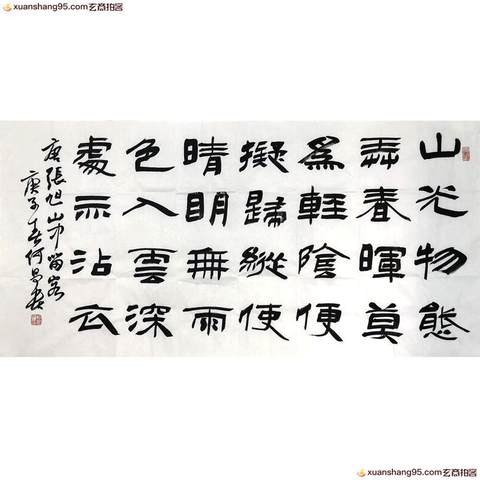 xuanshang95.com玄商拍客
山光物態
弄春暉莫
爲輕陰便
擬歸縱使
晴明無雨
色入雲深
處亦沾衣
唐張旭山中留客
庚子春何
xuanshang95.com玄商拍客